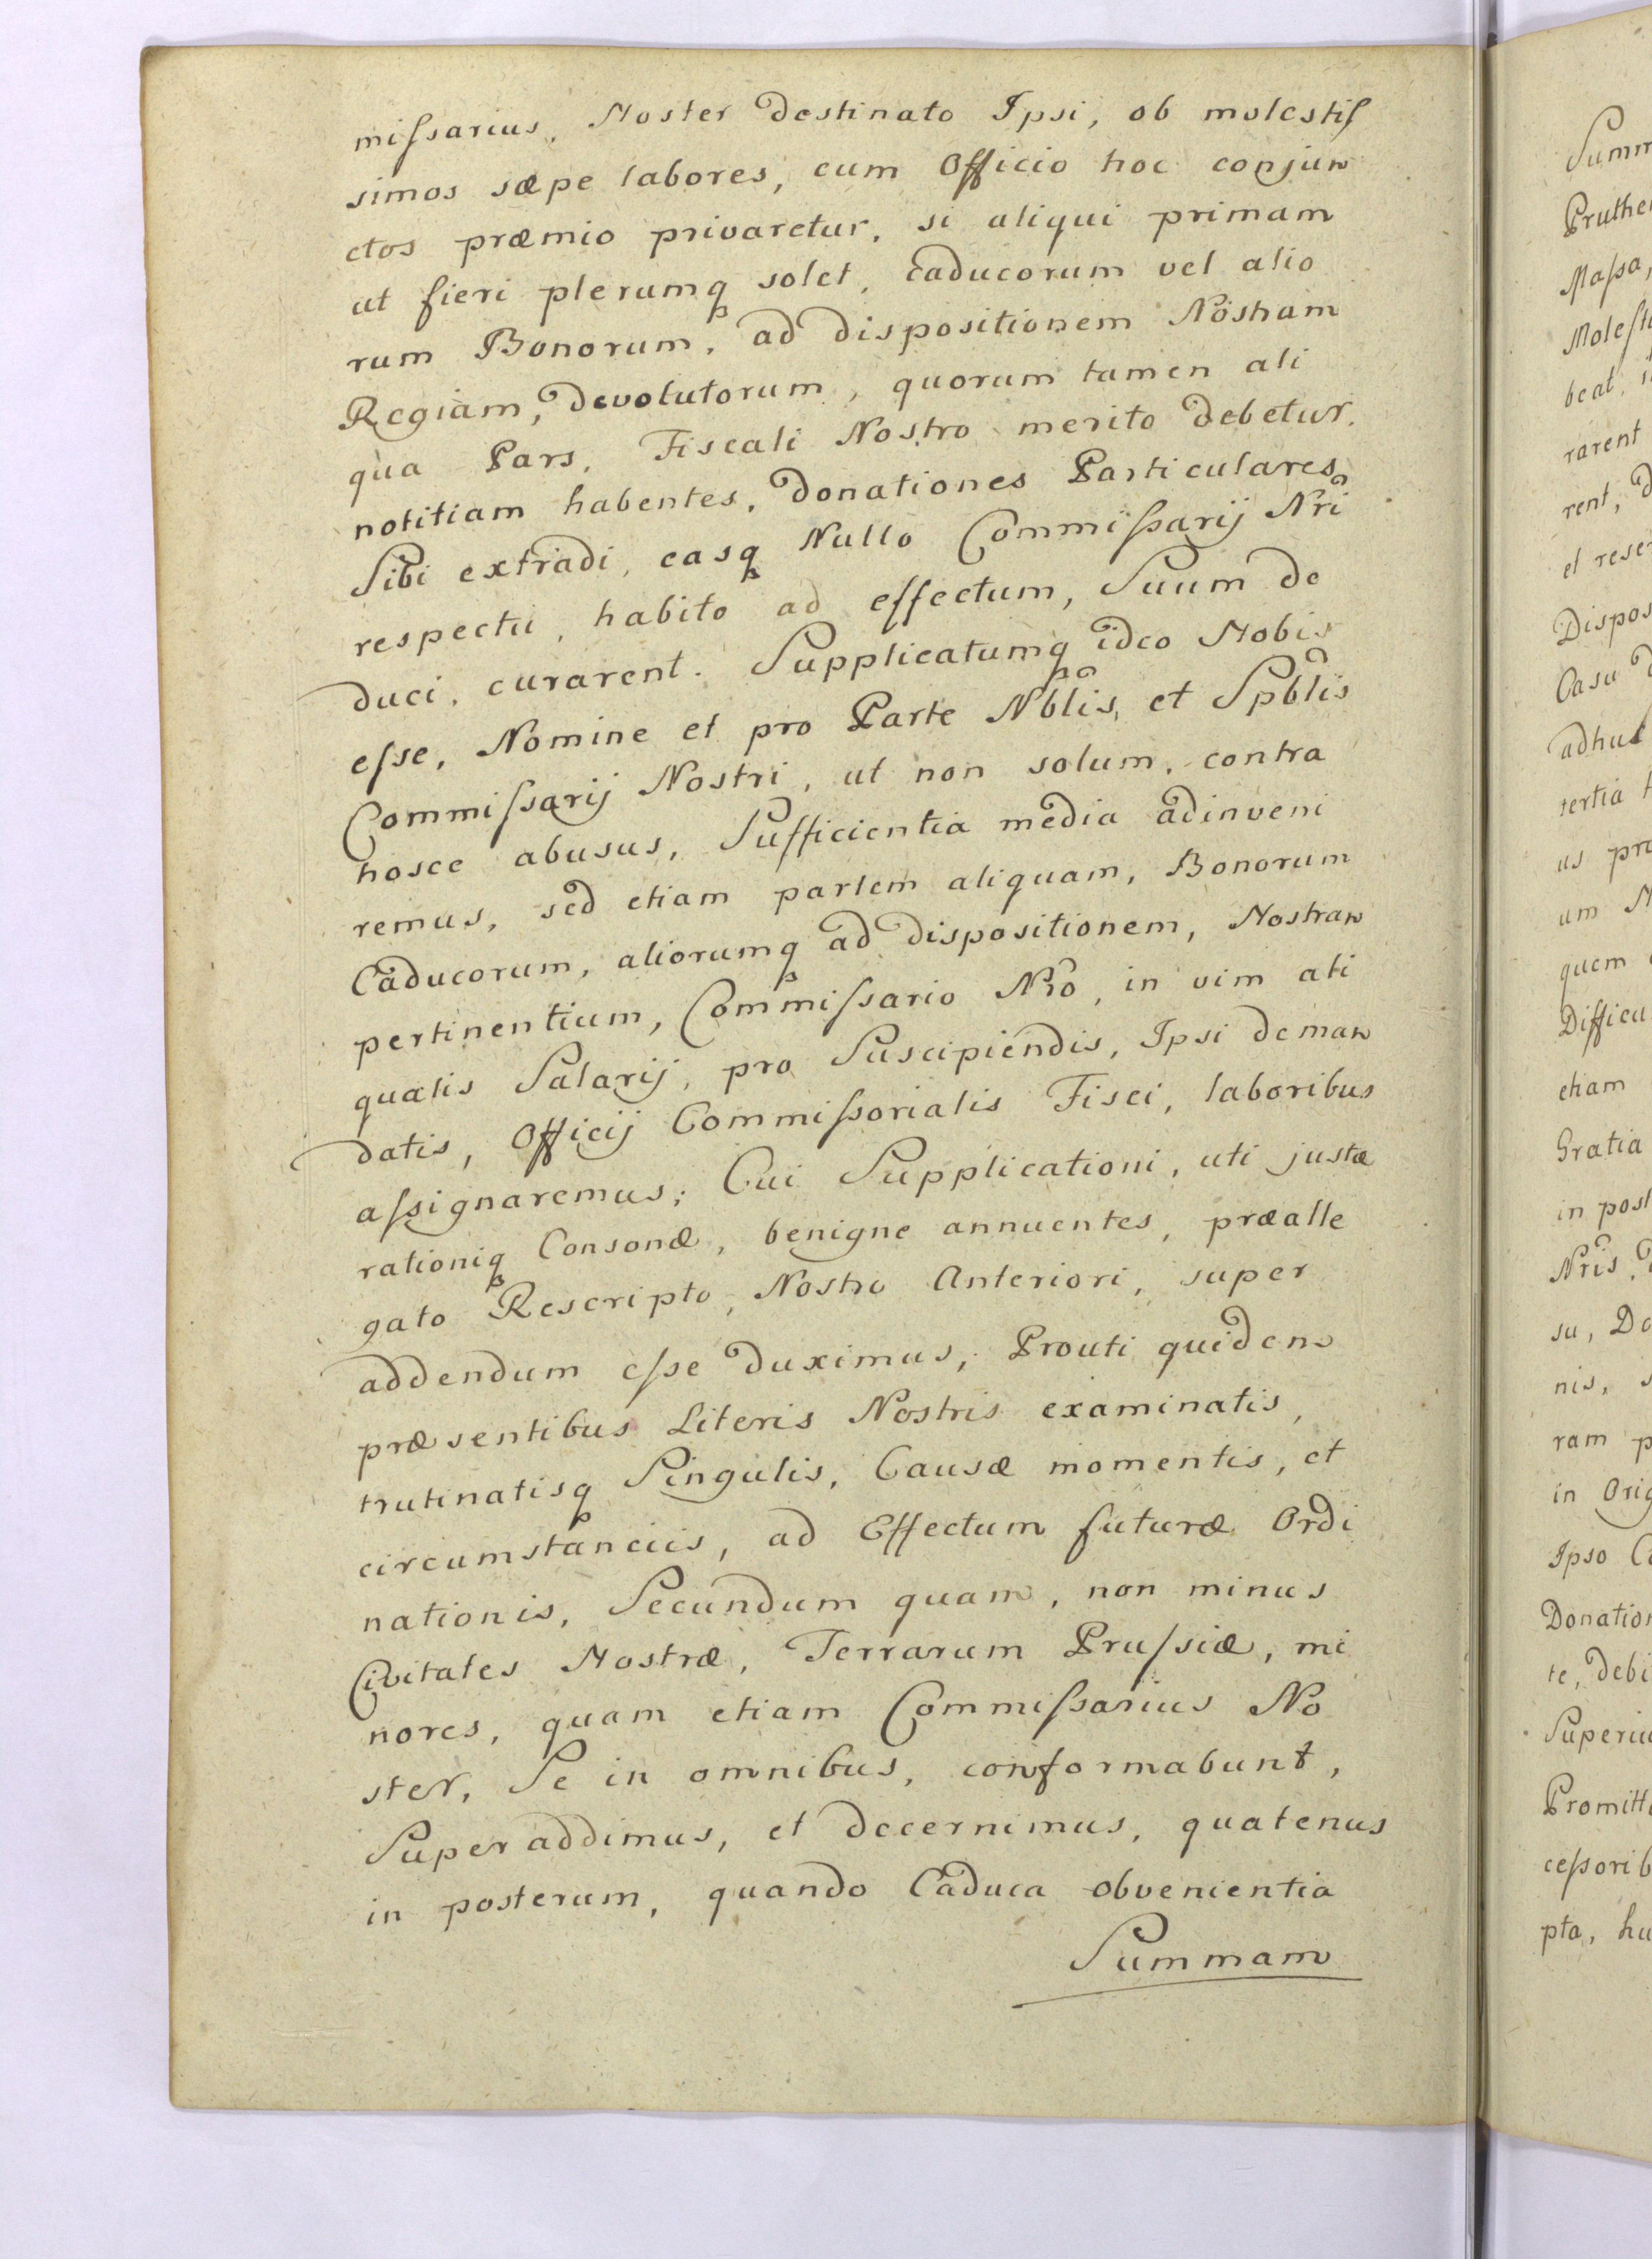 miſsarius, Noster destinato Ipsi, ob molestiſ
simos sæpe labores, cum Officio hoc conjun
ctos præmio privaretur, si aliqui primam
ut fieri plerumq; solet, caducorum vel alio
rum Bonorum, ad dispositionem Nostram
Regiam, devolutorum, quorum tamen ali
qua Pars, Fiscali Nostro merito debetur,
notitiam habentes, donationes Particulares
Sibi extradi, easq; Nullo Commiſsarij Nri
respectu, habito ad effectum, Suum de
duci, curarent. Supplicatumq; ideo Nobis
eſse, Nomine et pro Parte Nblis, et Spblis
Commiſsarij Nostri, ut non solum, contra
hosce abusus, Sufficientia media adinveni
remus, sed etiam partem aliquam, Bonorum
Caducorum, aliorumq; ad dispositionem, Nostram
pertinentium, Commiſsario Nro, in vim ali
qualis Salarij, pro Suscipiendis, Ipsi deman
datis, Officij Commiſsorialis Fisci, laboribus
aſsignaremus; Cui Supplicationi, uti justæ
rationiq; Consonæ, benigne annuentes, præalle
gato Rescripto, Nostro Anteriori, super
addendum eſse duximus, Prouti quidem
præsentibus Literis Nostris examinatis,
trutinatisq; Singulis, Causæ momentis, et
circumstanciis, ad Effectum futuræ Ordi
nationis, Secundum quam, non minus
Civitates Nostræ, Terrarum Pruſsiæ, mi
nores, quam etiam Commiſsarius No
ster, Se in omnibus, conformabunt,
Superaddimus, et decernimus, quatenus
in posterum, quando Caduca obvenientia
Summam